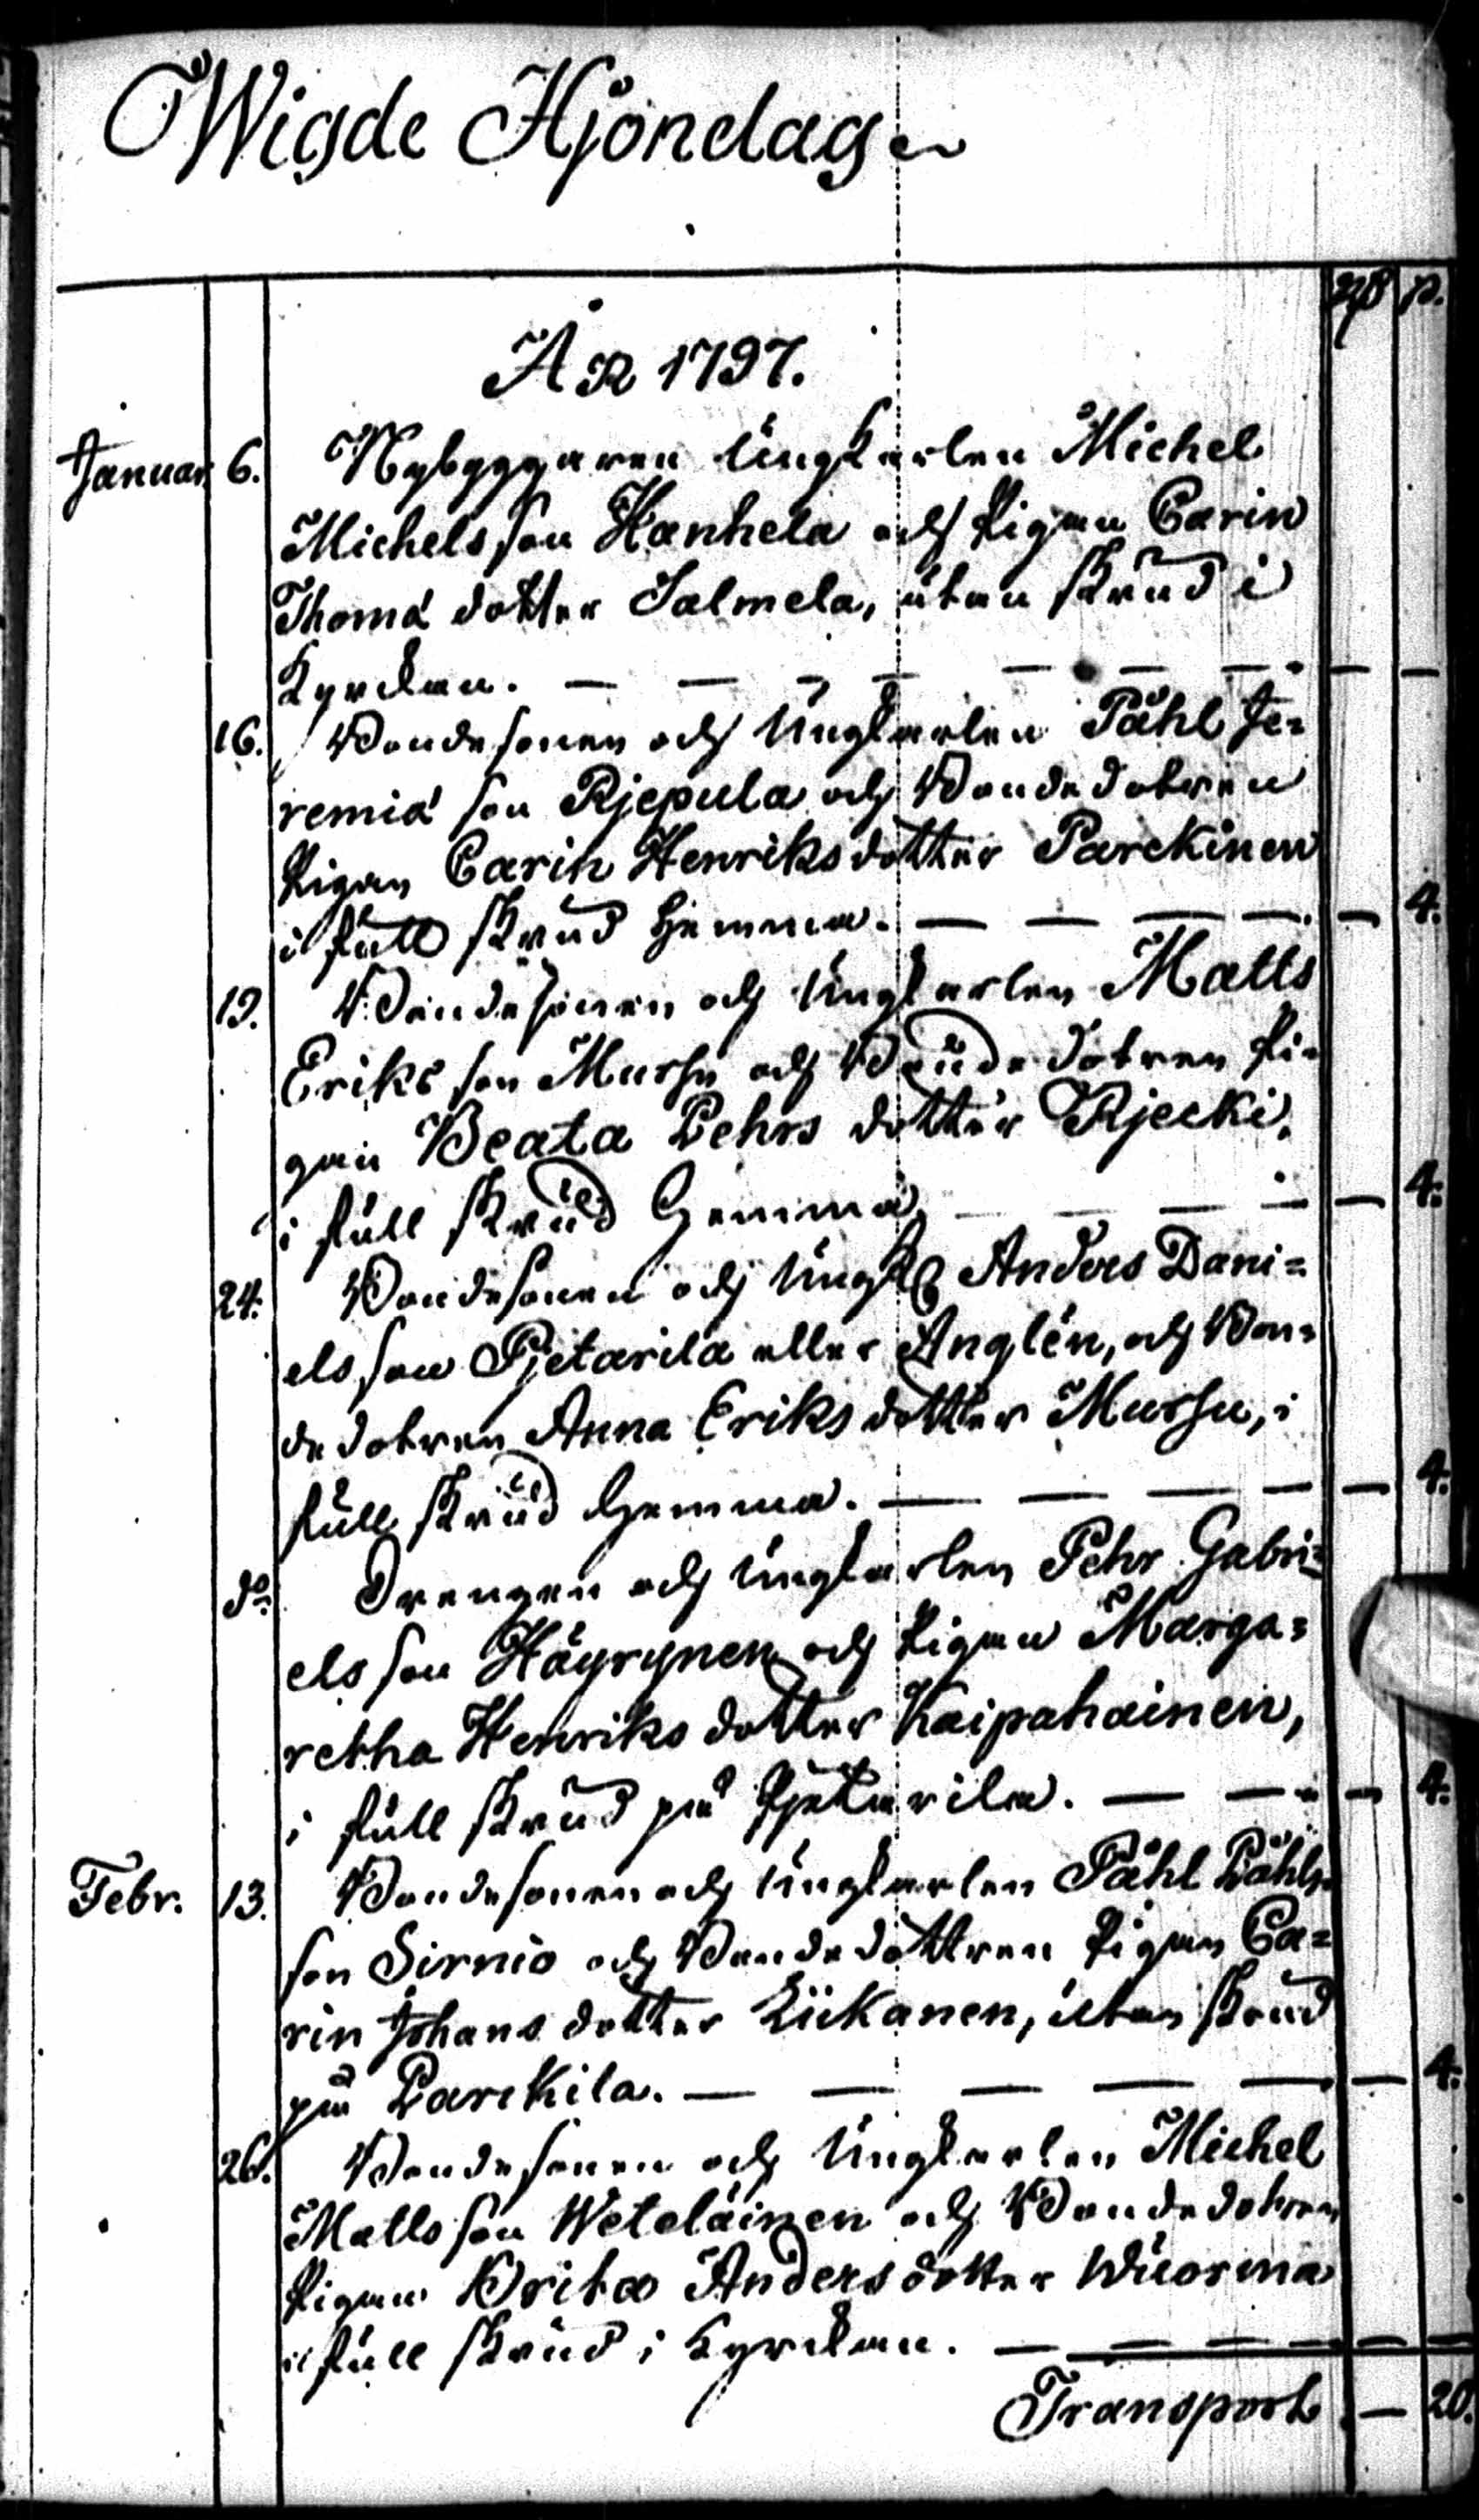 Wigde Hjonelag
År 1797.
Januar. 6. Nybyggaren Ungkarlen Michel
Michels son Hanhela och Pigan Carin
Thomæ dotter Salmela, utan skrud i
Kyrckan. — — — — — — — — —
16. Bondesonen och Ungkarlen Påhl Je=
remiæ son Rjepula och Bondedotren
Pigan Carin Henriks dotter Parckinen
i full skrud hemma. — — — — — 4.
19. Bondesonen och Ungkarlen Matts
Eriks son Mursu och Bondedotren Pi=
gan Beata Pehrs dotter Rjecki,
i full skrud hemma, — — — — — 4.
24. Bondesonen och Ungk. Anders Dani=
els son Pjetarila eller Anglén, och Bon=
dedotren Anna Eriks dotter Mursu, i
full skrud hemma. — — — — — 4.
do. Drengen och Ungkarlen Pehr Gabri=
els son Häyrynen och Pigan Marga=
retha Henriks dotter Kaipahainen,
i full skrud på Pjetarila. — — — — 4.
Febr. 13. Bondesonen och Ungkarlen Påhl Påhls
son Sirniö och Bondedottren Pigan Ca=
rin Johans dotter Kükanen, utan skrud
på Parckila. — — — — — — 4.
26. Bondesonen och Ungkarlen Michel
Matts son Weteläinen och Bondedotren
Pigan Brita Anders dotter Wuorma
i full skrud i Kyrckan. — — — — — —
Transport — 20.